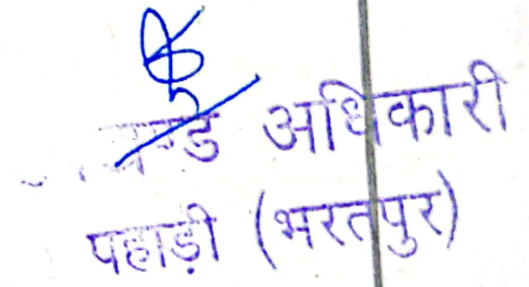 अधिकारी
पहाड़ी (भरतपुर)